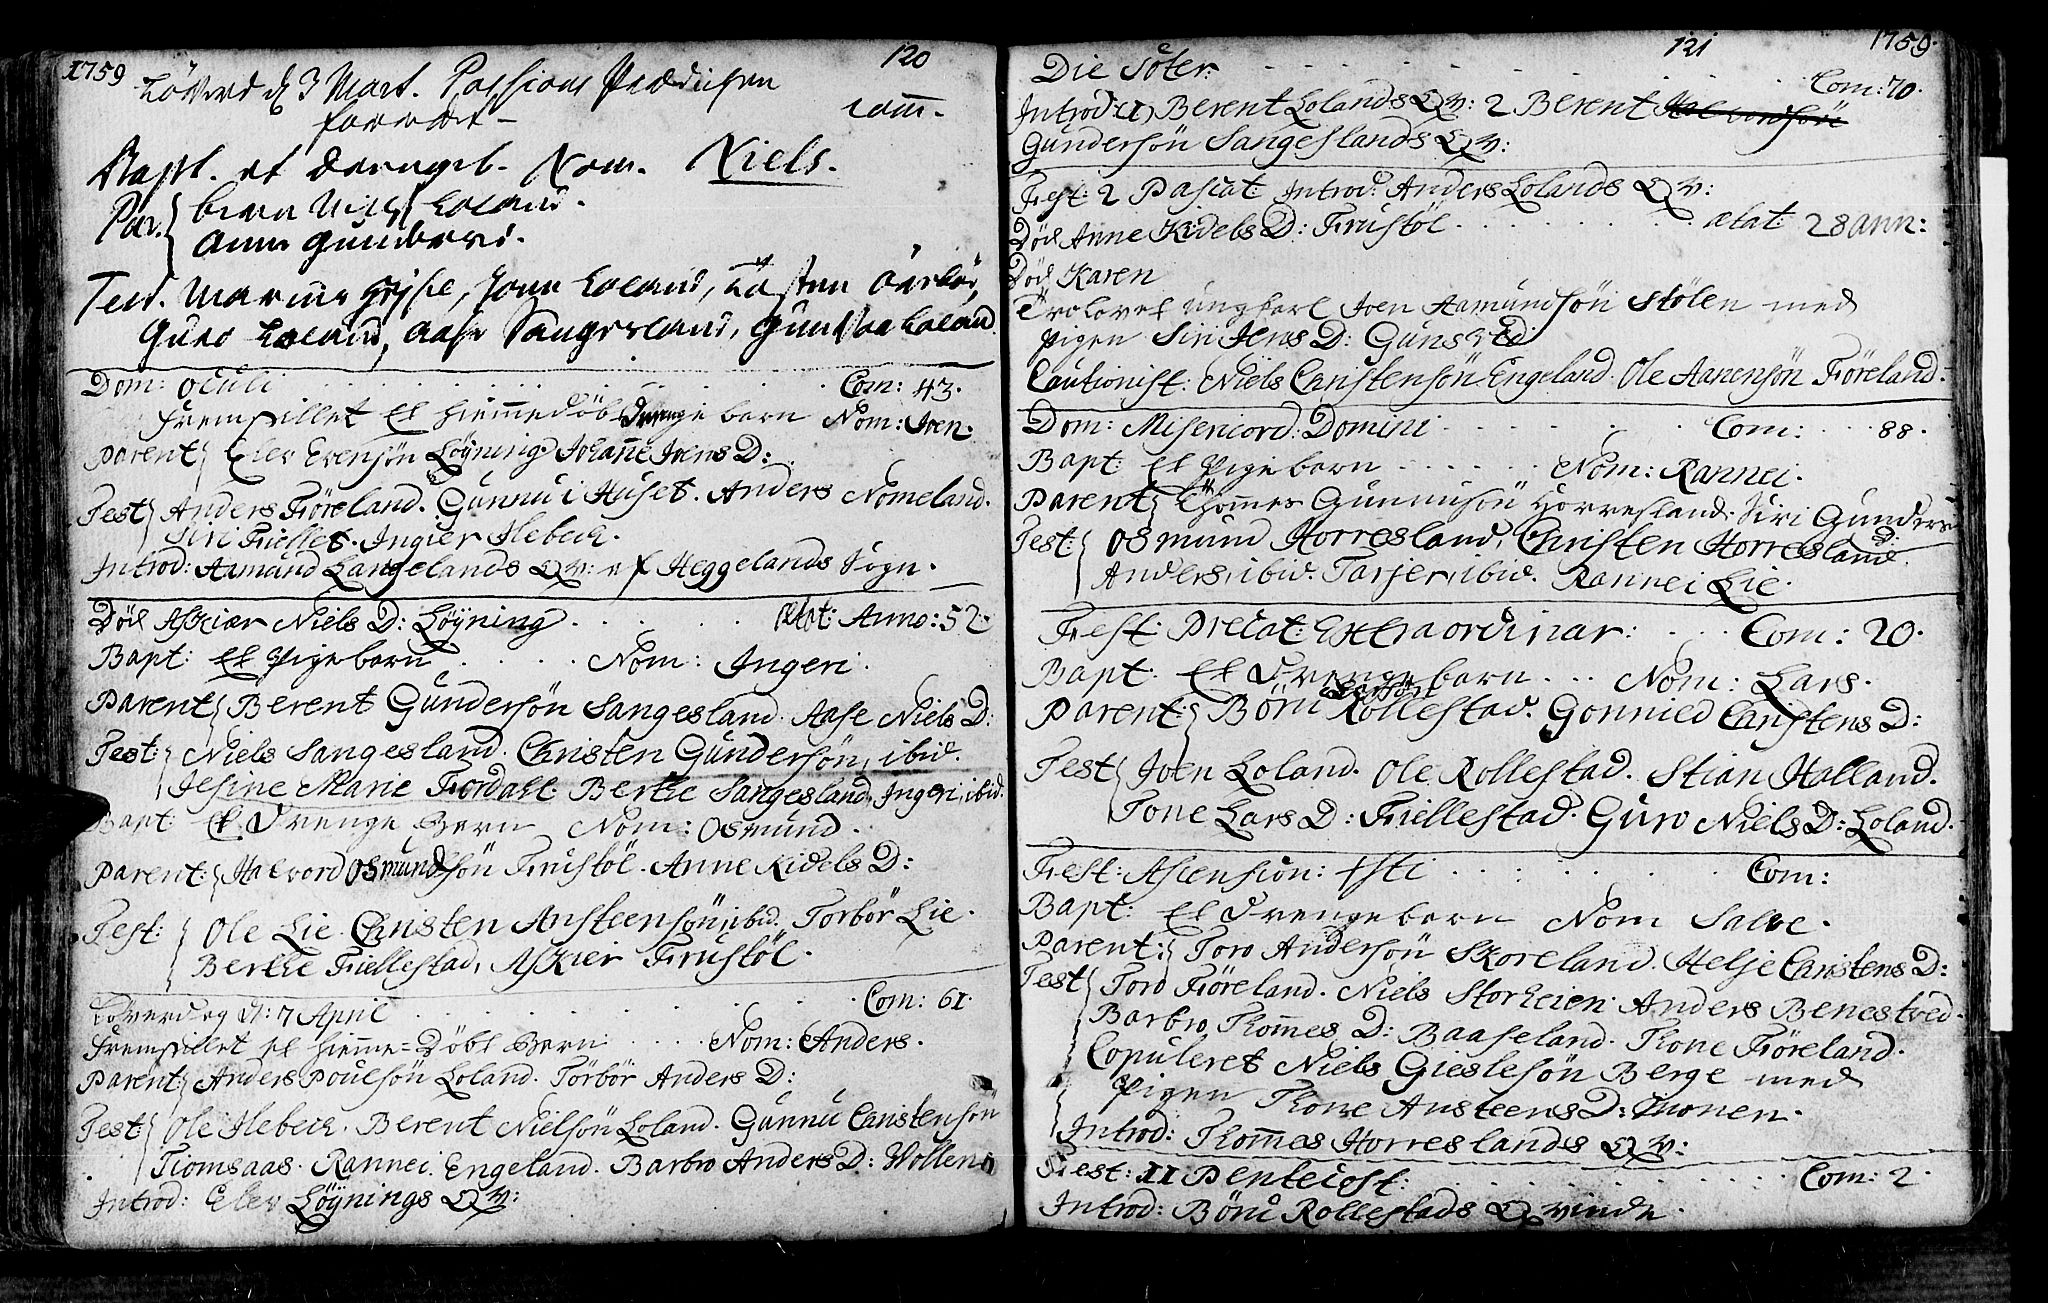 1759 120
d. 3 Mart. Passions Prædiken
forrettet - Com.
Bapt. et drengeb. Nom. Niels.
Par. { Niels Loland.
Anna Gunders D.
Test. Loland,
Guro Loland, Aase Sangesland, Loland
Dom: Oculi . . . . . . . . Com: 43.
Fremstillet Et Hiemmedöbt Drenge barn Nom: Joen.
Parent { Elev Evensön Löyning. Johanne Joens D:
Test { Anders Föreland. Gunnu i Huset. Anders Nomeland.
Siri Fiellet. Ingier Ilebeck.
Introd: Aamund Langelands Qv: af Heggelands Sogn.
Död Askier Niels D: Löyning . . . . . Ætat: Anno: 52.
Bapt: Et Pigebarn . . . . Nom: Ingeri.
Parent { Berent Gundersön Sangesland. Aase Niels D:
Test: { Niels Sangesland. Christen Gundersön, ibid.
Jesine Marie Berthe Sangesland, Ingeri, ibid.
Bapt: Et Drenge Bern Nom: Osmund.
Parent: { Halvord Osmundsön Frustöl. Anne Kidels D:
Test: { Ole Lie. Christen Ansteensön, ibid. Torbör Lie.
Berthe Fiellestad, Askier Frustöl.
Löverdag d: 7 April . . . . . . . Com: 61.
Fremstillet et Hiemme=Döbt Bern . . . . Nom: Anders.
Parent: { Anders Poulsön Loland. Törbör Anders D:
Test { Ole Ilebeck. Berent Nielsön Loland. Gunnu Christensön
Tiomsaas. Rannei Engeland. Barbro Anders D: Hollen
Introd: Elev Löynings Qv:
121 1759.
Die . . . . . . . . Com: 70.
Introd: 1) Berent Lolands Qv: 2 Berent
Gundersön Sangeslands Qv:
Fest: 2 Pascat: Introd: Anders Lolands Qv:
Död Anne Kidels D: Frustöl . . . . . . ætat: 28 ann:
Död Karen
Trolovet Ungkarl Joen Aamundsön Stölen med
Pigen Siri Jens D:
Cautionist: Niels Christensön Engeland. Ole Aanensön Föreland.
Dom: Misericord: Domini . . . . . . Com: . . . 88.
Bapt: Et Pigebarn . . . . . . Nom: Rannei.
Parent { Thommes Gunnusön Horresland. Siri Gunders D:
Test: { Osmund Horresland. Christen Horresland.
Anders, ibid. Tarjer, ibid. Rannei Lie.
Fest: Precat: Extraordinar: . . . Com: 20.
Bapt: Et Drengebarn . . . Nom: Lars.
Parent: { Böru Larsön Rollestad. Gonnied Christens D:
Test { Joen Loland. Ole Rollestad. Stian Halland.
Tone Lars D: Fiellestad. Guro Niels D: Loland.
Fest: Ascension: Xsti . . . . . . Com:
Bapt: Et Drengebarn Nom Salve.
Parent: { Toro Andersön Skoreland. Helje Christens D:
Test { Toro Föreland. Niels Storheien. Anders Benestved.
Barbro Thommes D: Baaseland. Thone Föreland.
Copuleret Niels Gieslesön Berge med
Pigen Thone Ansteens D: Monen.
Introd: Thommes Horreslands Qv:
Fest: II Pentecost: . . . . . . Com: 2.
Introd: Böru Rollestads Qvinde.